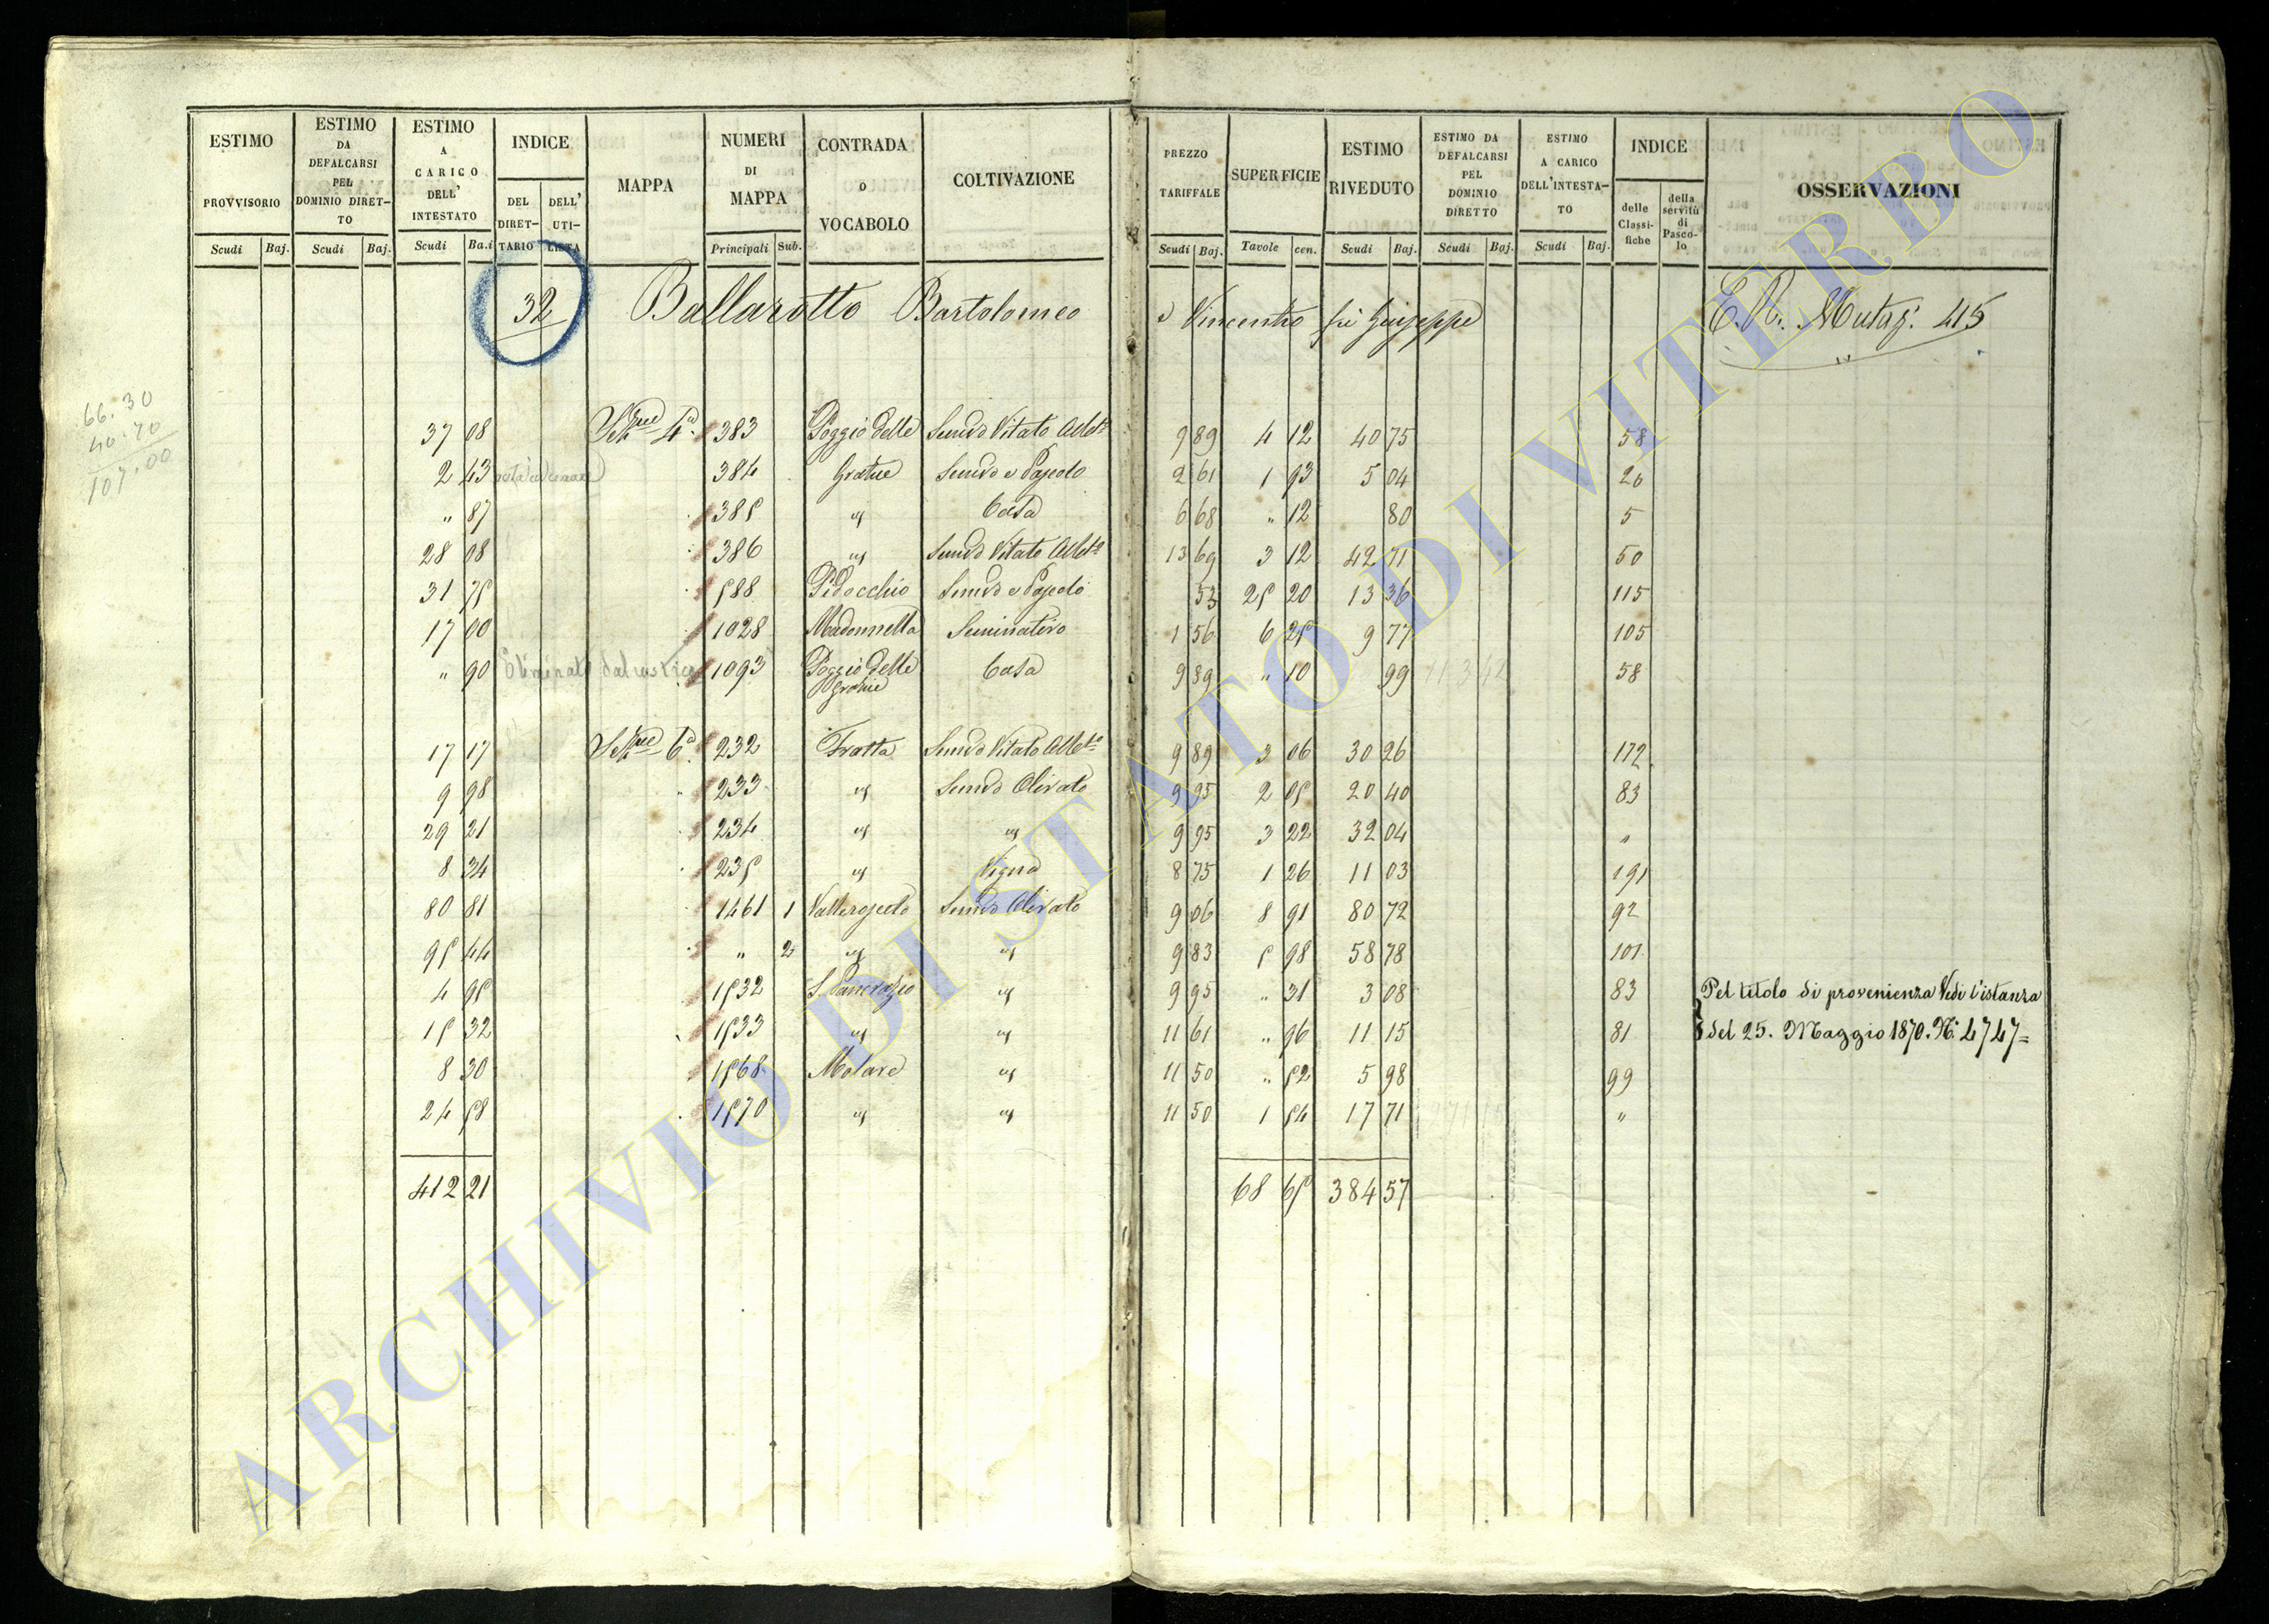 ESTIMO PROVVISORIO Scudi Baj.
ESTIMO DA DEFALCARSI PEL DOMINIO DIRETTO Scudi Baj.
ESTIMO A CARICO DELL' INTESTATO Scudi Ba.i
INDICE DEL DIRETTARIO DELL' UTILISTA
MAPPA
NUMERI DI MAPPA Principali Sub.
CONTRADA O VOCABOLO
COLTIVAZIONE
PREZZO TARIFFALE Scudi Baj.
SUPERFICIE Tavole cen.
ESTIMO RIVEDUTO Scudi Baj.
ESTIMO DA DEFALCARSI PEL DOMINIO DIRETTO Scudi Baj.
ESTIMO A CARICO DELL'INTESTATO Scudi Baj.
INDICE delle Classifiche della servitù di Pascolo
OSSERVAZIONI
32 Ballarotto Bartolomeo e Vincentio fu Giuseppe E. R. Mutaz. 415
66.30
40.70
107.00
37 08 Sezne 4a 383 Poggio delle Semvo Vitato Albto 9 89 4 12 40 75 58
2 43 384 Grazie Semvo e Pascolo 2 61 1 93 5 04 26
" 87 385 id Casa 6 68 " 12 80 5
28 08 386 id Semvo Vitato Albto 13 69 3 12 42 71 50
31 75 588 Pidocchio Semvo e Pascolo 53 25 20 13 36 115
17 00 1028 Madonnella Seminativo 1 56 6 25 9 77 105
" 90 Eliminato dal rustico 1093 Poggio delle Grazie Casa 9 89 " 10 99 58
17 17 Sezne 6a 232 Fratta Semvo Vitato Albto 9 89 3 06 30 26 172
9 98 233 id Semvo Olivato 9 95 2 05 20 40 83
29 21 234 id id 9 95 3 22 32 04 "
8 34 235 id Vigna 8 75 1 26 11 03 191
80 81 1461 1 Semvo Olivato 9 06 8 91 80 72 92
95 44 " 2 id id 9 83 5 98 58 78 101
4 95 1532 S. Pancrazio id 9 95 " 31 3 08 83 Pel titolo di provenienza Vedi l'istanza
15 32 1533 id id 11 61 " 96 11 15 81 del 25. Maggio 1870. N. 4747=
8 30 1568 Molare id 11 50 " 52 5 98 99
24 58 1570 id id 11 50 1 54 17 71 "
412 21 68 65 384 57
ARCHIVIO DI STATO DI VITERBO